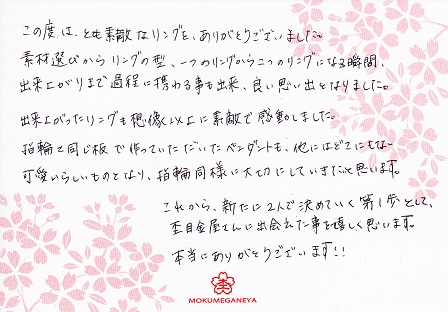 この度は、とても素敵なリングを、ありがとうございました。
素材選びからリングの型、一つのリングから二つのリングになる瞬間、
出来上がりまで過程に携わる事も出来、良い思い出となりました。
出来上がったリングも想像以上に素敵で感動しました。
指輪と同じ板で作っていただいたペンダントも、他にはどこにもない
可愛いらしいものとなり、指輪同様に大切にしていきたいと思います。
これから、新たに2人で決めていく第1歩として、
杢目金屋さんに出会えた事を嬉しく思います。
本当にありがとうございます!!
MOKUMEGANEYA